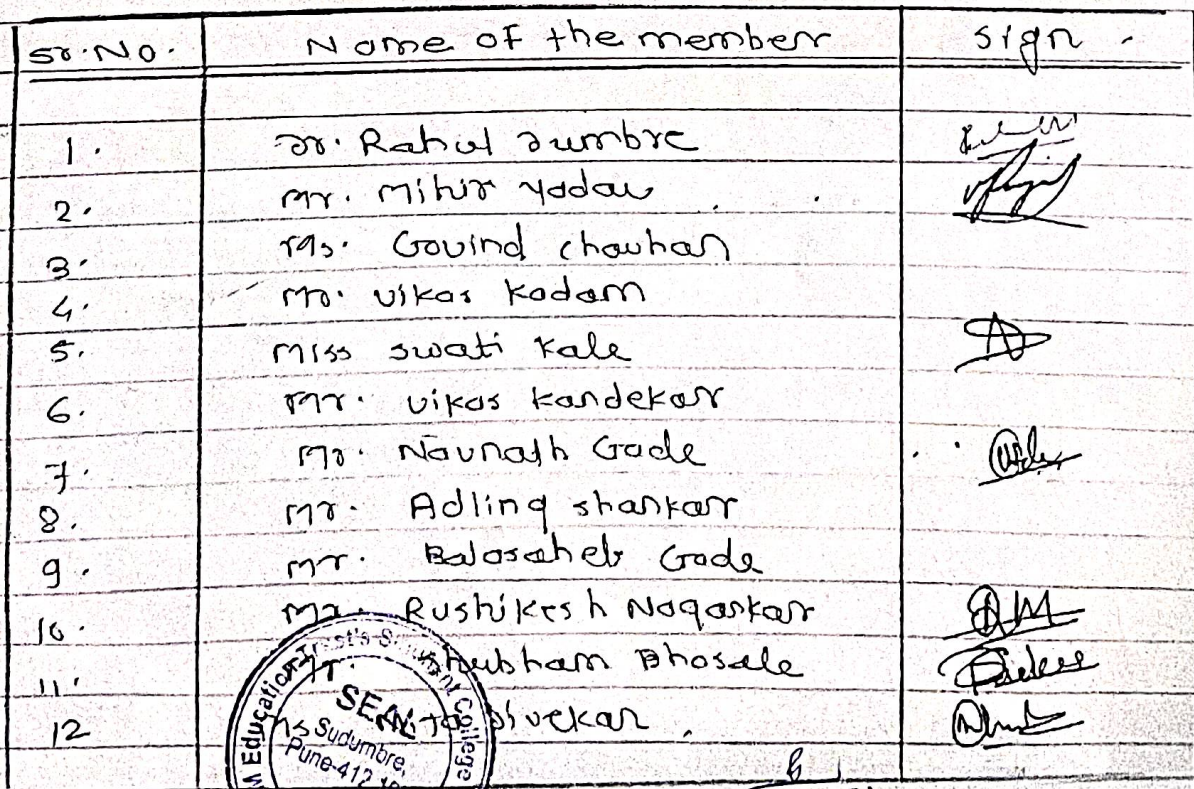 Sr. No. Name of the member Sign
1. Dr. Rahul Dumbre
2. Mr. Mihir Yadav
3. Ms. Govind Chauhan
4. Mr. Vikas Kadam
5. Miss Swati Kale
6. Mr. Vikas Kandekar
7. Mr. Navnath Gade
8. Mr. Adling Shankar
9. Mr. Balasaheb Gade
10. Mr. Rushikesh Nagarkar
11. Shubham Bhosale
12 Divekar
Education Trust's
College
SEAL
Sudumbre,
Pune-412